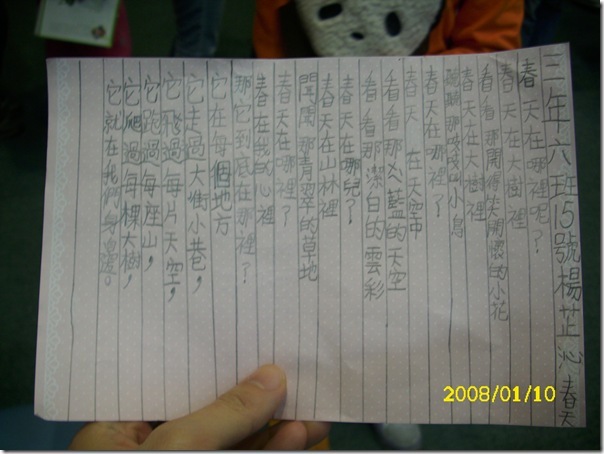 三年六班15號楊芷沁 春天
春天在哪裡呢？
春天在大樹裡
看看那開得失開懷的小花
春天在大樹裡
聽聽那吱吱叫小鳥
春天在哪裡？
春天 在天空中
看看那藍的天空
看看那潔白的雲彩
春天在哪兒？
春天在山林裡
聞聞那青翠的草地
春天在哪裡？
春在我的心裡
那它到底在那裡？
它在每個地方
它走過大街小巷，
它飛過每片天空，
它跳過每座山，
它爬過每棵大樹，
它就在我們身邊。
2008/01/10